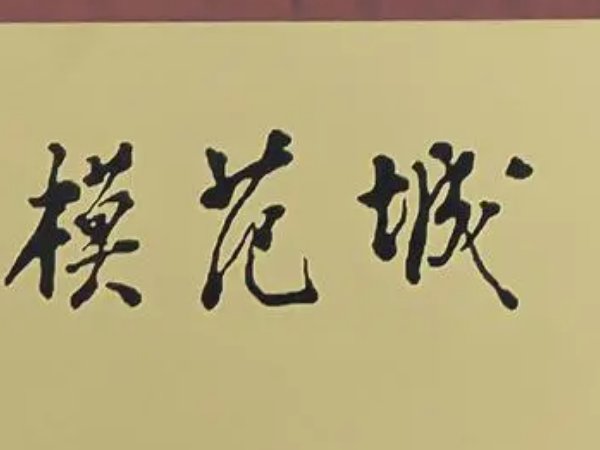 模范城